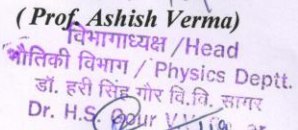 ( Prof. Ashish Verma)
विभागाध्यक्ष /Head
भौतिकी विभाग / Physics Deptt.
डॉ. हरी सिंह गौर वि.वि. सागर
Dr. H.S. Gour V.V.